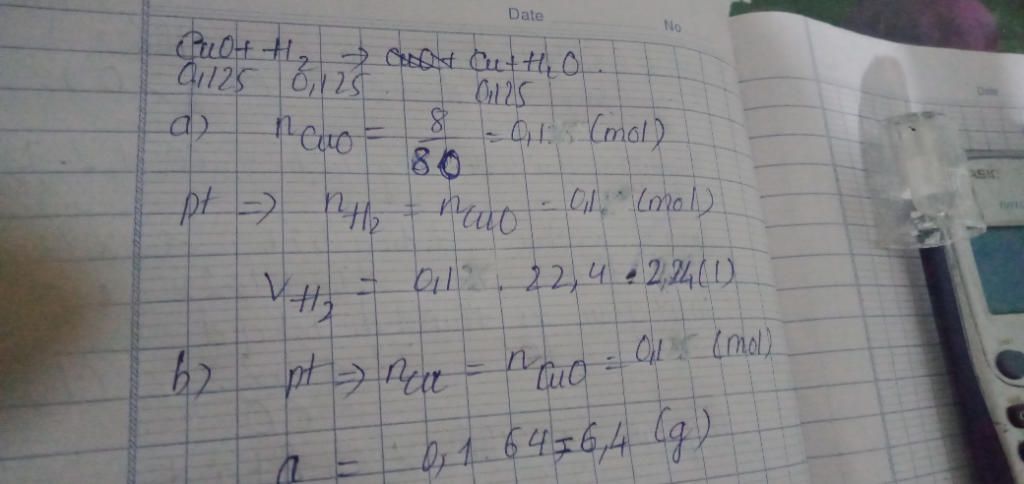 Date
No
CuO + H2 → Cu + H2O.
0,125 0,125 0,125
a) nCuO = 8/80 = 0,1 (mol)
pt => nH2 = nCuO = 0,1 (mol)
VH2 = 0,1 . 22,4 = 2,24 (l)
b) pt => nCu = nCuO = 0,1 (mol)
a = 0,1 . 64 = 6,4 (g)